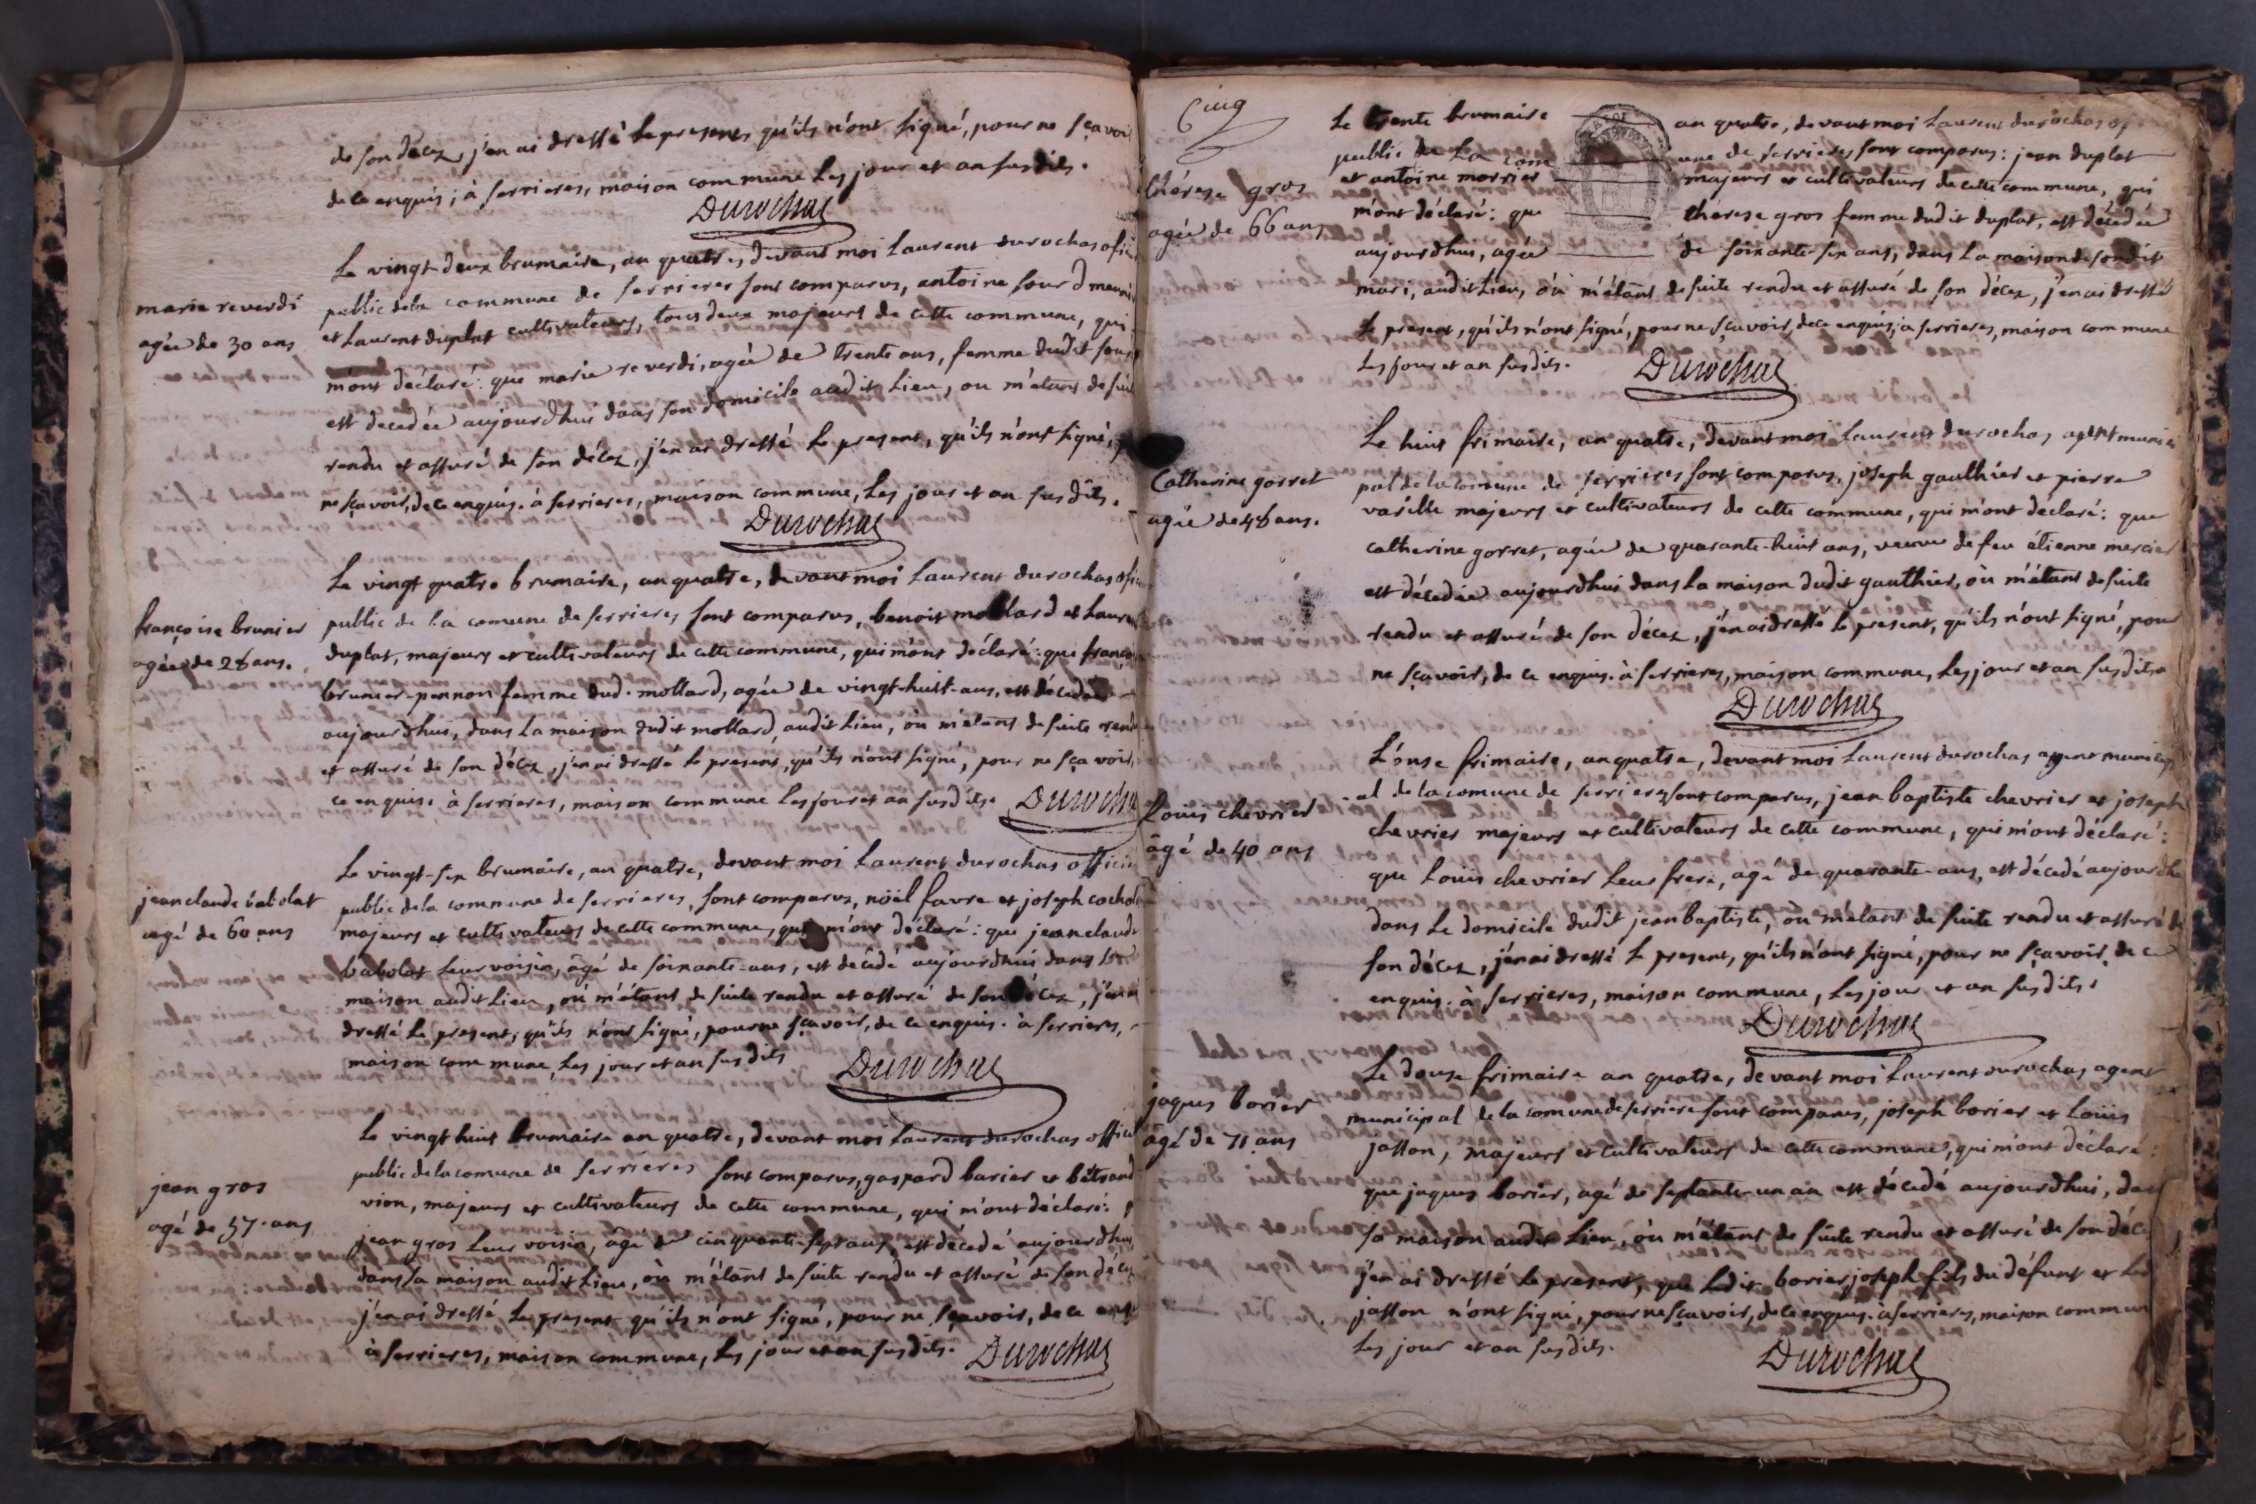 de son décez, j'en ai dressé le present, qu'ils n'ont signé, pour ne sçavoir
de ce enquis; à serrieres, maison commune les jour et an susdits.
Durochas
marie reverdi
agée de 30 ans
Le vingt deux brumaire, an quatre, devant moi Laurent durochas ofi
public de la commune de serrieres sont comparus, antoine sourd
et Laurent duplat cultivateurs, tous deux majeurs de cette commune, qui
m'ont déclaré: que marie reverdi, agée de trente ans, femme dudit
est decedée aujourdhui dans son domicile audit lieu, ou m'étant de suite
rendu et assuré de son décez, j'en ai dressé le present, qu'ils n'ont signé,
ne sçavoir, de ce enquis. à serrieres, maison commune, les jour et an susdits.
Durochas
françoise brunier
agée de 28 ans.
Le vingt quatre brumaire, an quatre, devant moi Laurent durochas ofi
public de la comune de serrieres sont comparus, benoit mollard et Laurent
duplat, majeurs et cultivateurs de cette commune, qui m'ont déclaré: que
brunier-pannon femme dud. mollard, agée de vingt-huit-ans, est décedée
aujourdhui, dans la maison dudit mollard, audit lieu, où m'étant de suite rendu
et assuré de son décez, j'en ai dressé le present, qu'ils n'ont signé, pour ne sçavoir,
ce enquis: à serrieres, maison commune les jour et an susdits. Durochas
jean claude babolat
agé de 60 ans
Le vingt-six brumaire, an quatre, devant moi Laurent durochas offici
public de la commune de serrieres, sont comparus, nöel favre et joseph
majeurs et cultivateurs de cette commune, qui m'ont déclaré: que jean claude
babolat leur voisin, âgé de soixante-ans, est décédé aujourdhui dans
maison audit lieu, où m'étant de suite rendu et assuré de son décez, j'en ai
dressé le present, qu'ils n'ont signé, pour ne sçavoir, de ce enquis. à serrieres,
maison commune, les jour et an susdits Durochas
jean gros
agé de 57 ans
Le vingt huit brumaire an quatre, devant moi Laurent durochas offici
public de la comune de serrieres sont comparus, gaspard barier et bétrand
vion, majeurs et cultivateurs de cette commune, qui m'ont déclaré:
jean gros leur voisin, âgé de cinquante-sept ans, est décédé aujourdhui
dans sa maison audit lieu, où m'étant de suite rendu et assuré de son décez
j'en ai dressé le present qu'ils n'ont signé, pour ne sçavoir, de ce
à serrieres, maison commune, les jour et an susdits. Durochas
Cinq
thérese gros
agée de 66 ans
Le trente brumaire an quatre, devant moi Laurent durochas of
public de la commune de serrieres sont comparus: jean duplat
et antoine morrier majeurs et cultivateurs de cette commune, qui
m'ont déclaré: que thérese gros femme dudit duplat, est décedée
aujourdhui, agée de soixante-six ans, dans la maison de sondit
mari, audit lieu, où m'étant de suite rendu et assuré de son décez, j'en ai dressé
le present, qu'ils n'ont signé, pour ne sçavoir, de ce enquis; à serrieres, maison commune
les jour et an susdits. Durochas
Catherine gorret
agée de 48 ans.
Le huit frimaire, an quatre, devant moi Laurent durochas agent munici
pal de la comune de serrieres sont comparus, joseph gauthier et pierre
varille majeurs et cultivateurs de cette commune, qui m'ont declaré: que
catherine gorret, agée de quarante-huit ans, veuve de feu étienne mercier
est décedée aujourdhui dans la maison dudit gauthier, où m'étant de suite
rendu et assuré de son décez, j'en ai dressé le present, qu'ils n'ont signé, pour
ne sçavoir, de ce enquis. à serrieres, maison commune, les jour et an susdits.
Durochas
Louis chevrier
âgé de 40 ans
L'onse frimaire, an quatre, devant moi Laurent durochas agent municip
al de la comune de serrieres sont comparus, jean baptiste chevrier et joseph
chevrier majeurs et cultivateurs de cette commune, qui m'ont déclaré:
que Louis chevrier leur frere, agé de quarante-ans, est décedé aujourdhui
dans le domicile dudit jean baptiste, ou m'étant de suite rendu et assuré de
son décez, j'en ai dressé le present, qu'ils n'ont signé, pour ne sçavoir, de ce
enquis. à serrieres, maison commune, les jour et an susdits.
Durochas
jaques borier
âgé de 71 ans
Le douze frimaire an quatre, devant moi Laurent durochas agent
municipal de la comune de serriere sont comparus, joseph borier et Loüis
jasson, majeurs et cultivateurs de cette commune, qui m'ont déclaré:
que jaques borier, agé de septante-un an est décedé aujourdhui, dans
sa maison audit lieu, où m'étant de suite rendu et assuré de son décez
j'en ai dressé le present, que ledit borier joseph fils du défunt et led
jasson n'ont signé, pour ne sçavoir, de ce enquis. à serrieres, maison commune
les jour et an susdits.
Durochas